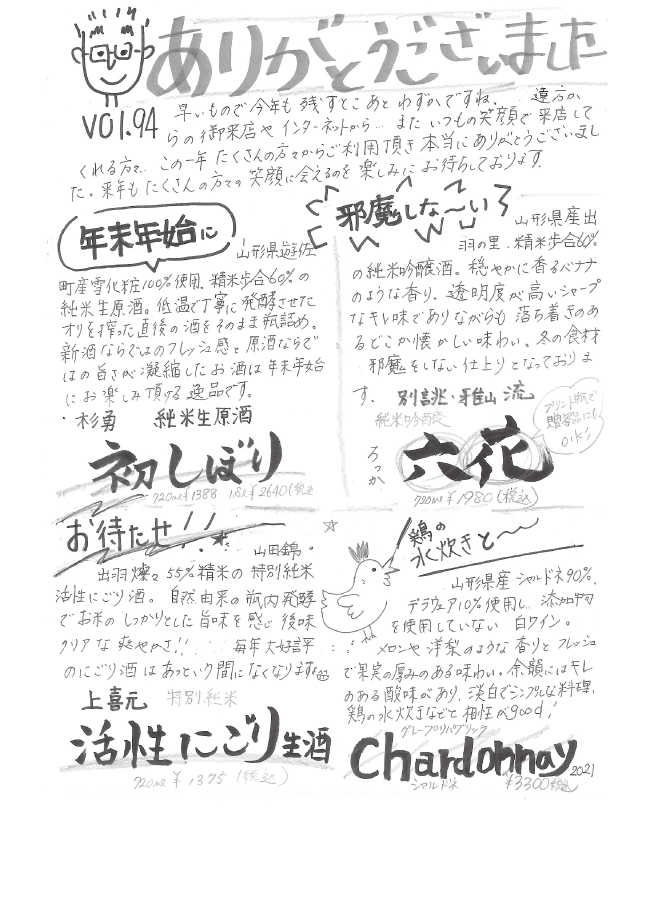 ありがとうございました
VOl.94
早いもので今年も残すとこあとわずかですね。 遠方か
らの御来店やインターネットから… またいつもの笑顔で来店して
くれる方々… この一年たくさんの方々からご利用頂き本当にありがとうございまし
た。来年もたくさんの方々の笑顔に会えるのを楽しみにお待ちしております。
年末年始に
山形県遊佐
町産雪化粧100%使用、精米歩合60%の
純米生原酒。低温で丁寧に発酵させた
オリを搾った直後の酒をそのまま瓶詰め。
新酒ならではのフレッシュ感と原酒ならで
はの旨さが凝縮したお酒は年末年始
にお楽しみ頂ける逸品です。
・杉勇 純米生原酒
初しぼり
720ml ¥1388 1.8L ¥2640(税込
邪魔しな〜い
山形県産出
羽の里、精米歩合60%
の純米吟醸酒。穏やかに香るバナナ
のような香り、透明度が高いシャープ
なキレ味でありながらも落ち着きのあ
るどこか懐かしい味わい。冬の食材
邪魔をしない仕上りとなっておりま
す。 別誂・雅山流
純米吟醸
プリント瓶で
贈答品にも
OK!
ろっか
六花
720ml ¥1980(税込)
お待たせ!!
山田錦・
出羽燦々55%精米の特別純米
活性にごり酒。自然由来の瓶内発酵
でお米のしっかりとした旨味を感じ後味
クリアな爽やかさ!! 毎年大好評
のにごり酒はあっという間になくなります
上喜元 特別純米
活性にごり生酒
720ml ¥1375(税込)
鶏の
水炊きと〜
山形県産シャルドネ90%、
デラウェア10%使用し、添加物
を使用していない 白ワイン。
メロンや洋梨のような香りとフレッシュ
で果実の厚みのある味わい。余韻にはキレ
のある酸味があり、淡白でシンプルな料理、
鶏の水炊きなどと相性がgood!
グレープリパブリック
Chardonnay 2021
シャルドネ ¥3300税込